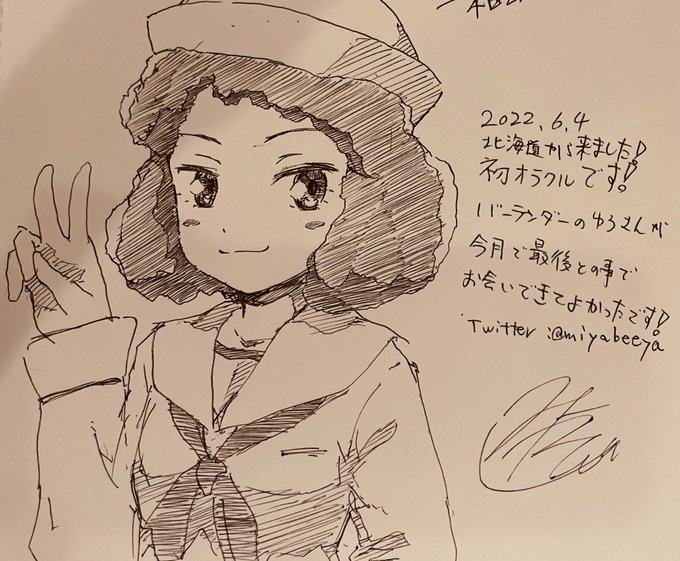 2022.6.4
北海道から来ました!
初オラクルです!
バーランダーのゆうさんが
今月で最後との事で
お会いできてよかったです!
Twitter:@miyabeeya